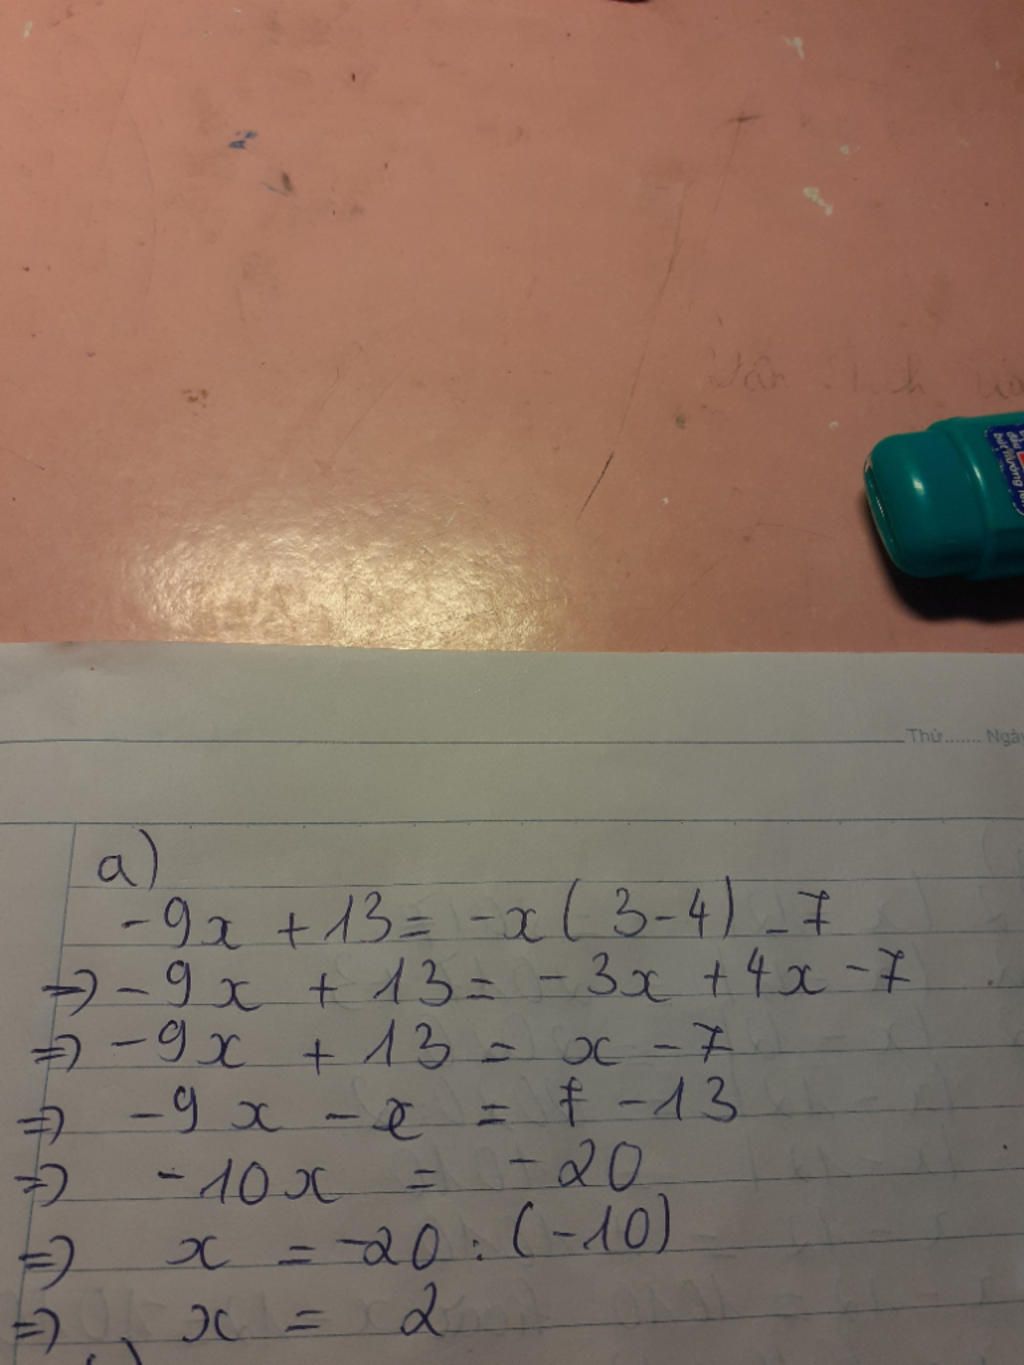 Thứ....... Ngày
a)
-9x + 13 = -x ( 3-4) - 7
=> -9x + 13 = -3x + 4x - 7
=> -9x + 13 = x - 7
=> -9x - x = 7 - 13
=> -10x = -20
=> x = -20 : (-10)
=> x = 2